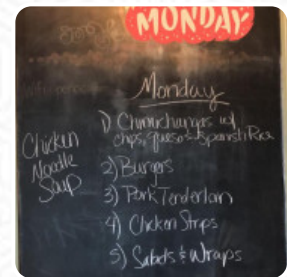 MONDAY
Monday
Chicken
Noodle
Soup
1) Chimichangas w/
chips, queso & Spanish Rice
2) Burgers
3) Pork Tenderloin
4) Chicken Strips
5) Salads & Wraps